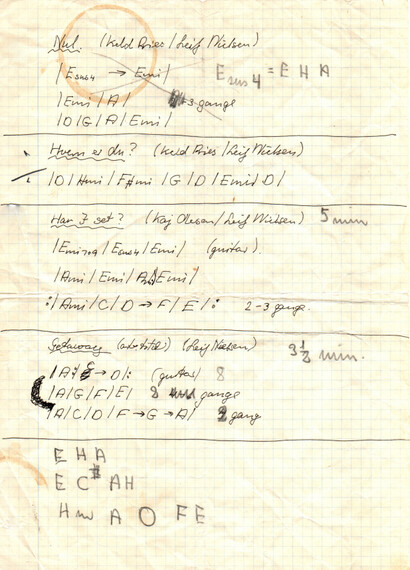 Nul. (Keld Pries / Leif Nielsen)
| Esus4 → Emi | Esus4 = E H A
| Emi | A | 3 gange
| D | G | A | Emi |
Hvem er du? (Keld Pries / Leif Nielsen)
| D | Hmi | F#mi | G | D | Emi | D |
Har I set? (Kaj Olesen / Leif Nielsen) 5 min
| Emi7+9 | Esus4 | Emi | (guitar).
| Ami | Emi | Emi |
:| Ami | C | D → F | E | : 2-3 gange.
Getaway (Leif Nielsen) 3 1/2 min.
| A → D | : (guitar) 8
| A | G | F | E | 8 gange
| A | C | D | F → G → A | 2 gang
E H A
E C# A H
Hm A O F E